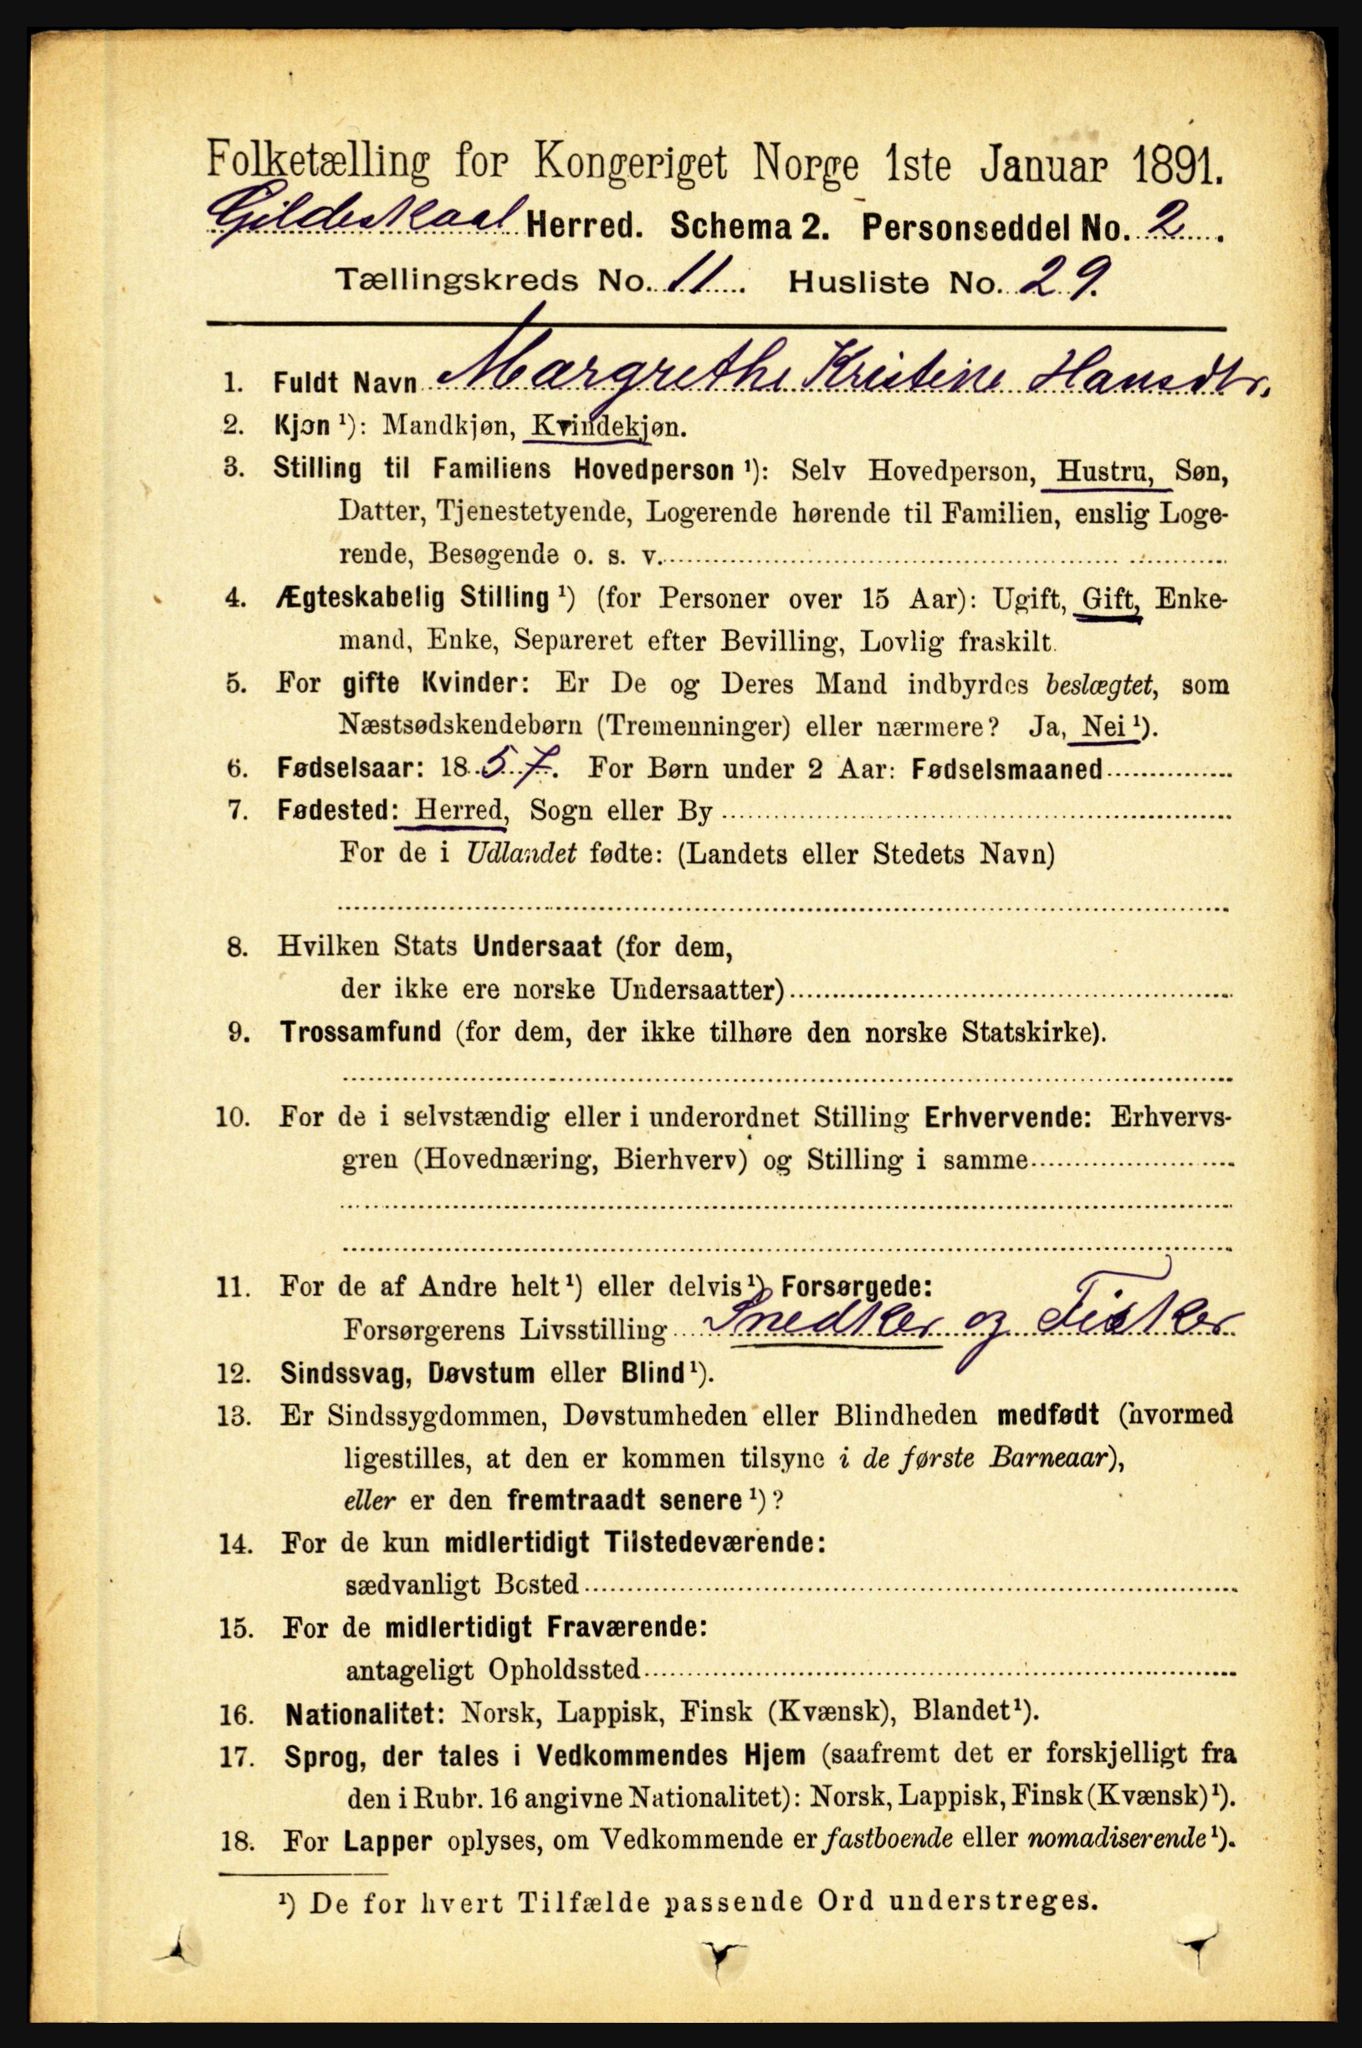 Folketælling for Kongeriget Norge 1ste Januar 1891.
Gildeskaal Herred. Schema 2. Personseddel No. 2.
Tællingskreds No. 11. Husliste No. 29.
1. Fuldt Navn Margrethe Kristine Hansdtr.
2. Kjøn ¹): Mandkjøn, Kvindekjøn.
3. Stilling til Familiens Hovedperson ¹): Selv Hovedperson, Hustru, Søn,
Datter, Tjenestetyende, Logerende hørende til Familien, enslig Loge-
rende, Besøgende o. s. v.
4. Ægteskabelig Stilling ¹) (for Personer over 15 Aar): Ugift, Gift, Enke-
mand, Enke, Separeret efter Bevilling, Lovlig fraskilt.
5. For gifte Kvinder: Er De og Deres Mand indbyrdes beslægtet, som
Næstsødskendebørn (Tremenninger) eller nærmere? Ja, Nei ¹).
6. Fødselsaar: 1857. For Børn under 2 Aar: Fødselsmaaned
7. Fødested: Herred, Sogn eller By
For de i Udlandet fødte: (Landets eller Stedets Navn)
8. Hvilken Stats Undersaat (for dem,
der ikke ere norske Undersaatter)
9. Trossamfund (for dem, der ikke tilhøre den norske Statskirke).
10. For de i selvstændig eller i underordnet Stilling Erhvervende: Erhvervs-
gren (Hovednæring, Bierhverv) og Stilling i samme
11. For de af Andre helt ¹) eller delvis ¹) Forsørgede:
Forsørgerens Livsstilling Snedker og Fisker
12. Sindssvag, Døvstum eller Blind ¹).
13. Er Sindssygdommen, Døvstumheden eller Blindheden medfødt (hvormed
ligestilles, at den er kommen tilsyne i de første Barneaar),
eller er den fremtraadt senere ¹)?
14. For de kun midlertidigt Tilstedeværende:
sædvanligt Bosted
15. For de midlertidigt Fraværende:
antageligt Opholdssted
16. Nationalitet: Norsk, Lappisk, Finsk (Kvænsk), Blandet ¹).
17. Sprog, der tales i Vedkommendes Hjem (saafremt det er forskjelligt fra
den i Rubr. 16 angivne Nationalitet): Norsk, Lappisk, Finsk (Kvænsk) ¹).
18. For Lapper oplyses, om Vedkommende er fastboende eller nomadiserende ¹).
¹) De for hvert Tilfælde passende Ord understreges.